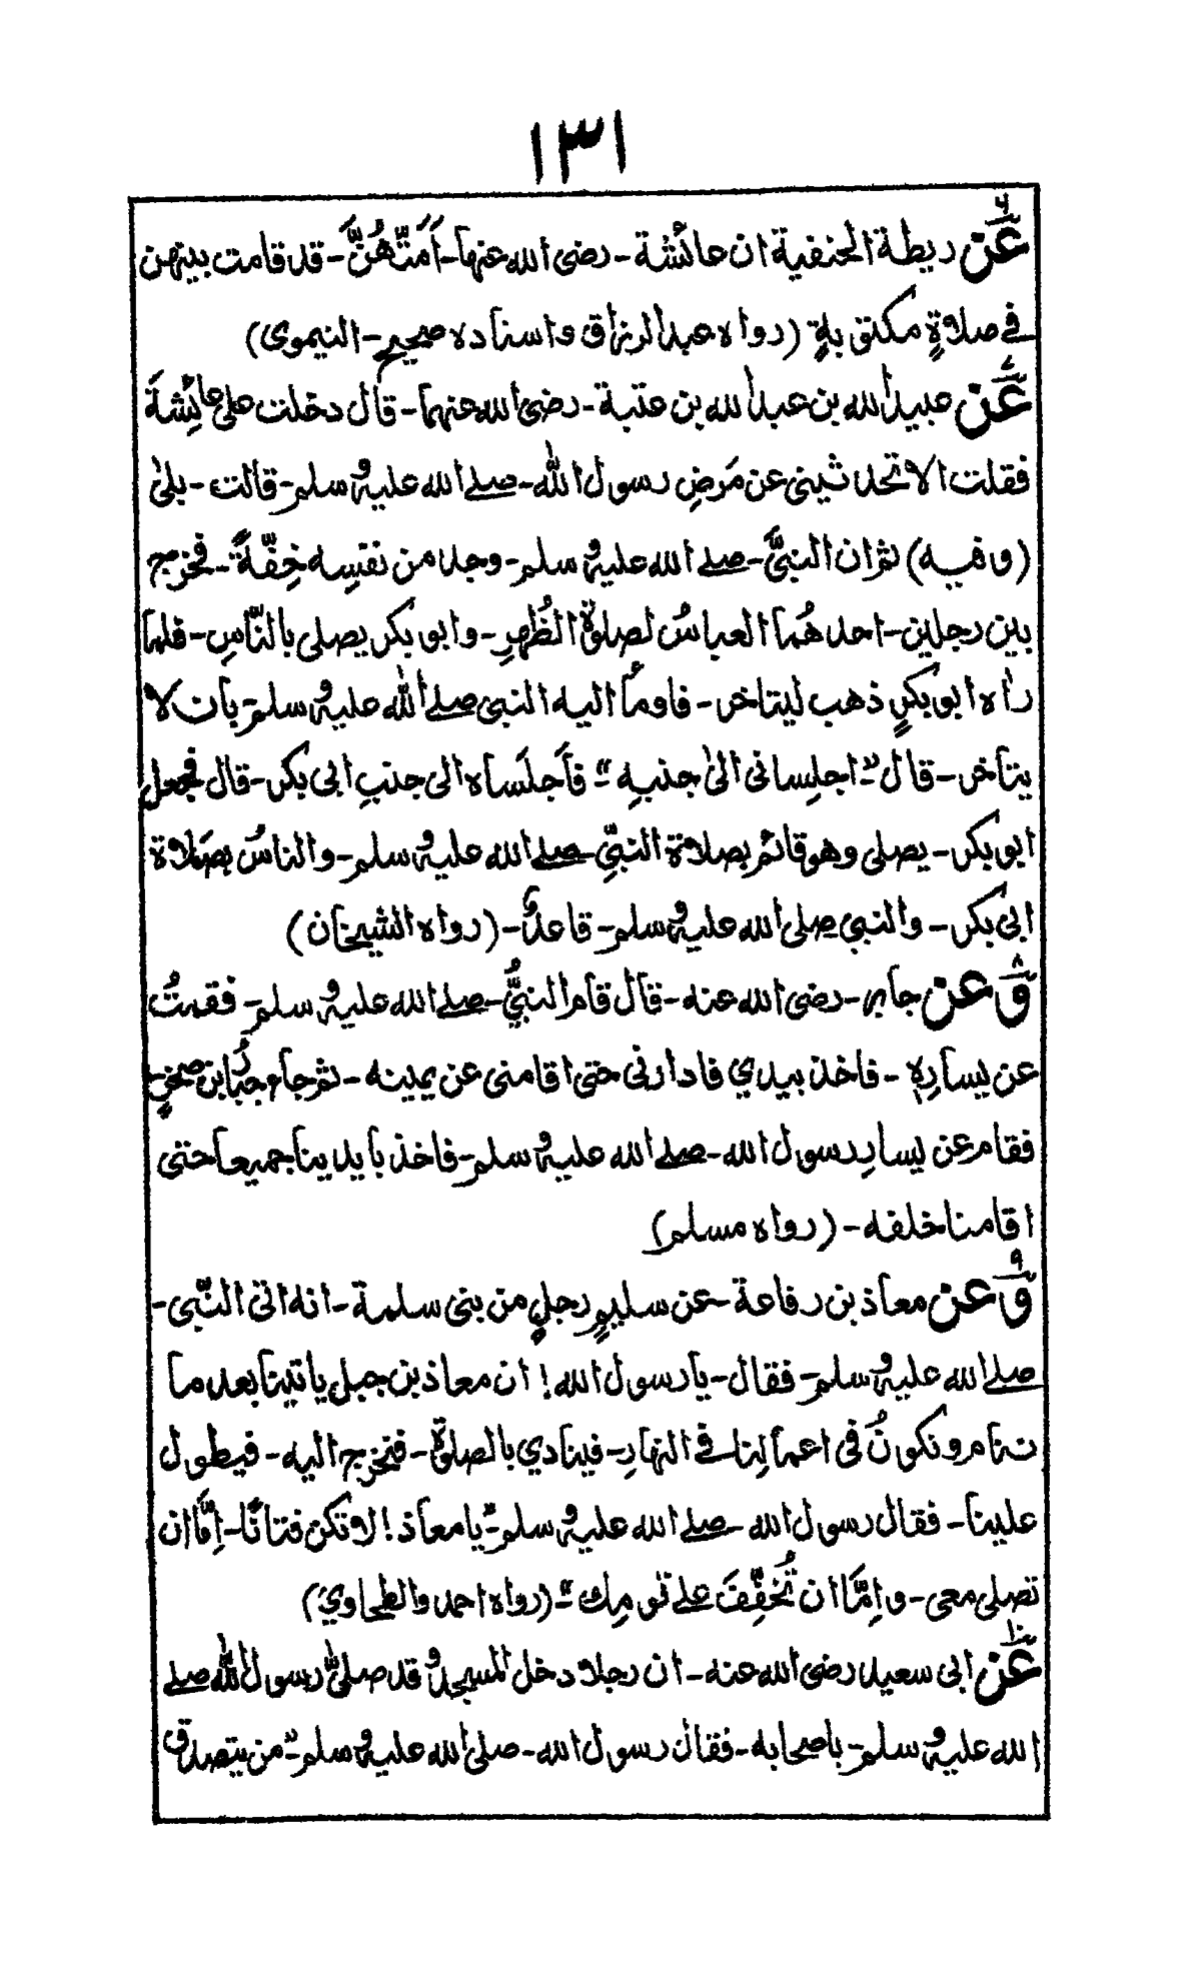 ١٣١
٦ عَن ريطة الحنفية ان عائشة - رضى الله عنها - اَمَّتْهُنَّ - قد قامت بينهن
فى صلاةٍ مكتوبةٍ (رواه عبد الرزاق واسناده صحيح - النيموى)
٧ عَن عبيد الله بن عبد الله بن عتبة - رضى الله عنهما - قال دخلت على عائِشةَ
فقلت الا تحدثينى عن مَرضِ رسول الله - صلے الله عليه وسلم - قالت - بلىٰ
(وفيه) ثم ان النبىَّ - صلے الله عليه وسلم - وجد من نفسِه خِفّةً - فخرج
بين رجلين - احدهُما العباسُ لصلوٰة الظُهرِ - وابو بكر يصلى بالنّاسِ - فلما
راٰه ابو بكرٍ ذهب ليتاخر - فاومأ اليه النبى صلے الله عليه وسلم - بان لا
يتاخر - قال "اجلِسانى الىٰ جنبِه" - فاَجلَساه الى جنبِ ابى بكر - قال فجعل
ابو بكر - يصلى وهو قائم بصلاة النبىِّ - صلے الله عليه وسلم - والناسُ بصَلاة
ابى بكر - والنبي صلى الله عليه وسلم - قاعدٌ - (رواه الشيخان)
٨ وَعن جابر - رضى الله عنه - قال قام النبىُّ - صلے الله عليه وسلم - فقمتُ
عن يسارِه - فاخذ بيدي فادارنى حتى اقامنى عن يمينه - ثم جاء جبّارُ بن صخرٍ -
فقام عن يسارِ رسول الله - صلے الله عليه وسلم - فاخذ بايدينا جميعا حتى
اقامنا خلفه - (رواه مسلم)
٩ وَعن معاذ بن رفاعة - عن سليمٍ رجلٍ من بنى سلمة - انه اتى النّبى -
صلے الله عليه وسلم - فقال - يا رسول الله! ان معاذ بن جبل ياتينا بعد ما
ننام ونكونُ فى اعمالِنا فى النهارِ - فينادي بالصلوٰة - فنخرج اليه - فيطول
علينا - فقال رسول الله - صلے الله عليه وسلم - "يا معاذ! لا تكن فتانًا - اِمَّا ان
تصلى معى - واِمَّا ان تُخفِّفَ علے قومِك" - (رواه احمد والطحاوي)
١٠ عَن ابى سعيد رضى الله عنه - ان رجلا دخل المسجد وقد صلىّٰ رسول الله صلے
الله عليه وسلم - باصحابه - فقال رسول الله - صلى الله عليه وسلم - "من يتصدق